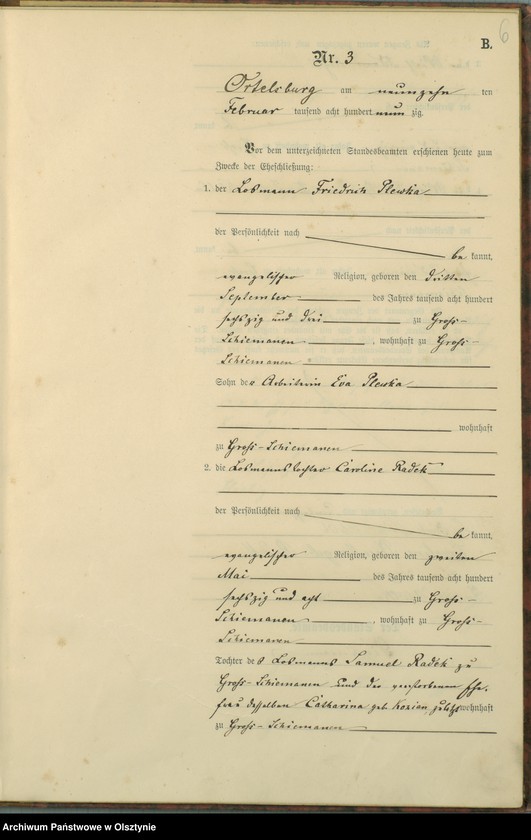 6
B.
Nr. 3
Ortelsburg am neunzehn ten
Februar tausend acht hundert neun zig.
Vor dem unterzeichneten Standesbeamten erschienen heute zum
Zwecke der Eheschließung:
1. der Losmann Friedrich Plewka
der Persönlichkeit nach
be kannt,
evangelischer Religion, geboren den dritten
September des Jahres tausend acht hundert
sechszig und drei zu Groß-
Schiemanen, wohnhaft zu Groß-
Schiemanen
Sohn der Arbeiterin Eva Plewka
wohnhaft
zu Groß-Schiemanen
2. die Losmannstochter Caroline Radek
der Persönlichkeit nach
be kannt,
evangelischer Religion, geboren den zweiten
Mai des Jahres tausend acht hundert
sechszig und acht zu Groß-
Schiemanen, wohnhaft zu Groß-
Schiemanen
Tochter des Losmanns Samuel Radek zu
Groß-Schiemanen und der verstorbenen Ehe-
frau desselben Catharina geb. Kozian, zuletzt wohnhaft
zu Groß-Schiemanen
Archiwum Państwowe w Olsztynie